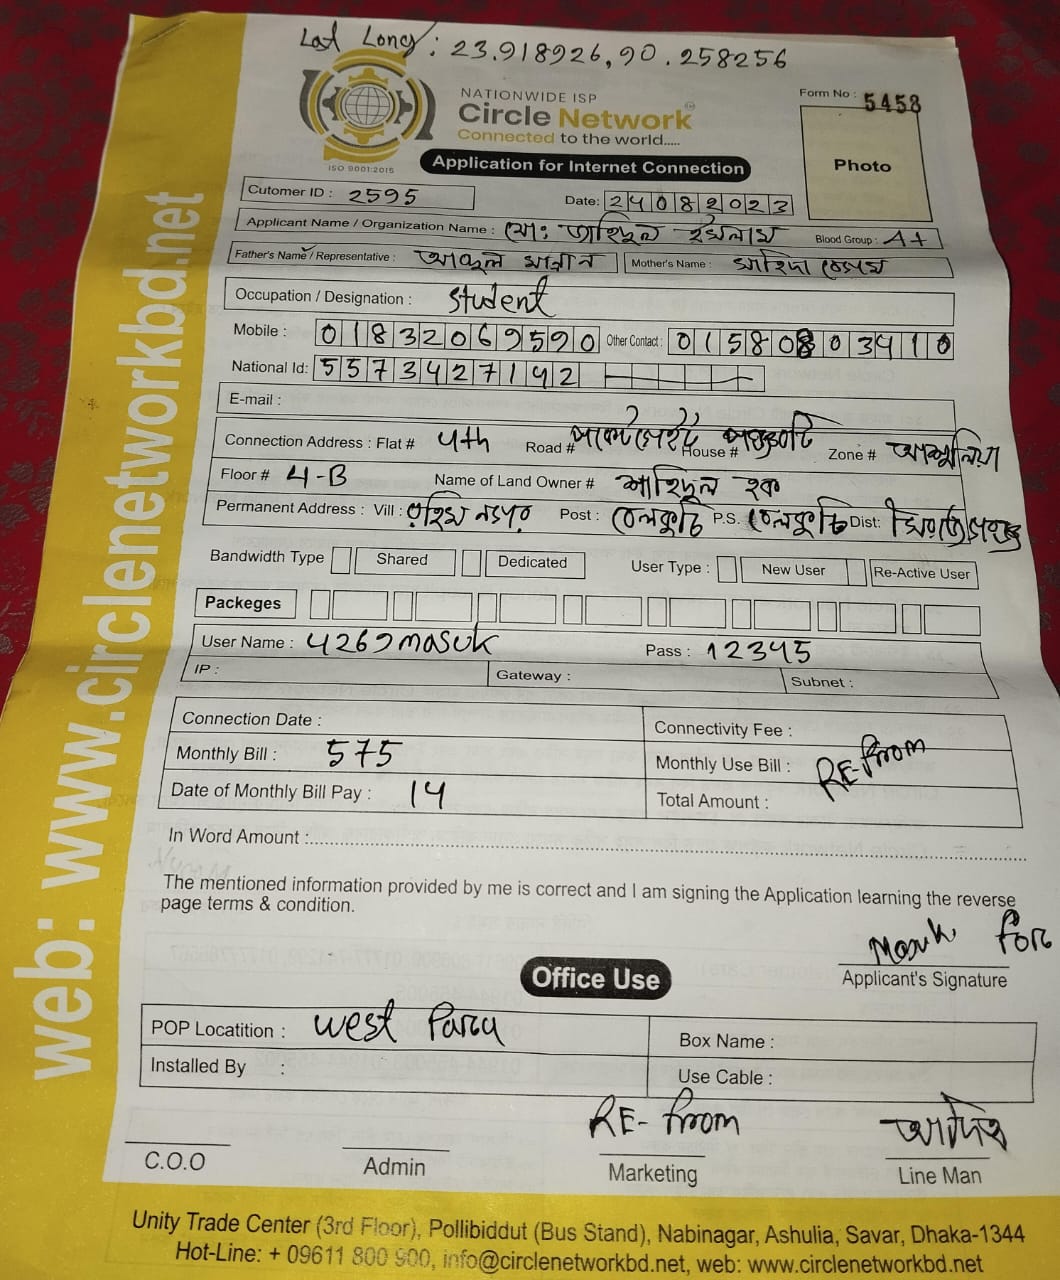 Lat Long: 23.918926, 90.258256
NATIONWIDE ISP
Circle Network
Connected to the world.....
ISO 9001:2015
Form No : 5458
Application for Internet Connection
Photo
Cutomer ID : 2595 Date: 24082023
Applicant Name / Organization Name : মোঃ জাহিদুল ইসলাম Blood Group : A+
Father's Name / Representative : আব্দুল মান্নান Mother's Name :
Occupation / Designation : Student
Mobile : 01832069590 Other Contact: 01580803410
National Id: 5573427142
E-mail :
Connection Address : Flat # 4th Road # House # Zone # আশুলিয়া
Floor # 4-B Name of Land Owner # হক
Permanent Address : Vill : Post : বেলকুচি P.S. বেলকুচি Dist: সিরাজগঞ্জ
Bandwidth Type Shared Dedicated User Type : New User Re-Active User
Packeges
User Name : 4269masuk Pass : 12345
IP : Gateway : Subnet :
Connection Date : Connectivity Fee :
Monthly Bill : 575 Monthly Use Bill : RE-from
Date of Monthly Bill Pay : 14 Total Amount :
In Word Amount :
The mentioned information provided by me is correct and I am signing the Application learning the reverse
page terms & condition.
for
Applicant's Signature
Office Use
POP Locatition : west Para Box Name :
Installed By : Use Cable :
RE-from
C.O.O Admin Marketing Line Man
Unity Trade Center (3rd Floor), Pollibiddut (Bus Stand), Nabinagar, Ashulia, Savar, Dhaka-1344
Hot-Line: + 09611 800 900, info@circlenetworkbd.net, web: www.circlenetworkbd.net
web: www.circlenetworkbd.net